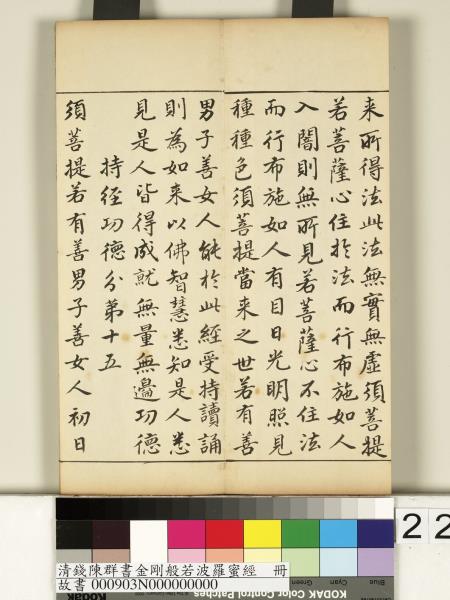 来所得法此法無實無虛須菩提
若菩薩心住於法而行布施如人
入闇則無所見若菩薩心不住法
而行布施如人有目日光明照見
種種色須菩提當来之世若有善
男子善女人能於此經受持讀誦
則為如来以佛智慧悉知是人悉
見是人皆得成就無量無邊功德
持經功德分第十五
須菩提若有善男子善女人初日
22
Blue
Cyan
Green
清錢陳群書金剛般若波羅蜜經 冊
故書 000903N000000000
Kodak Color Control Patches